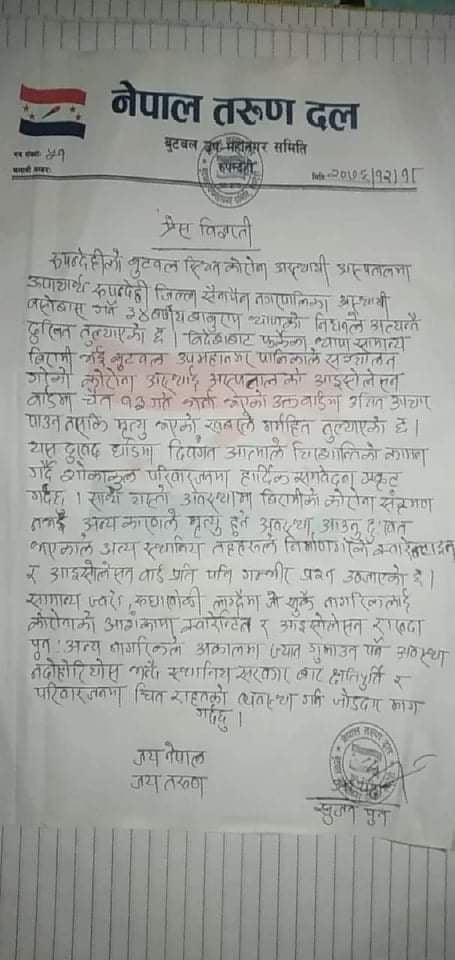 नेपाल तरूण दल
बुटवल उप-महानगर समिति
रुपन्देही
पत्र संख्याः ५१
चलानी नम्बरः
मितिः २०७६/१२/१८
प्रेस विज्ञप्ती
रुपन्देहीको बुटवल स्थित कोरोना अस्थायी अस्पतालमा
रुपन्देही जिल्ला सैनामैना नगरपालिका अस्थायी
बसोबास गर्ने ३४ वर्षीय बाबुराम थापाको निधनले अत्यन्तै
दुःखित तुल्याएको छ । विदेशबाट फर्केका थापा सामान्य
बिरामी भई बुटवल उपमहानगर पालिकाले सञ्चालन
गरेको कोरोना अस्थाई अस्पतालको आइसोलेसन
वार्डमा चैत १३ गते भर्ना भएको उक्त वार्डमा उचित उपचार
पाउन नसकि मृत्यु भएको खबरले मर्माहित तुल्याएको छ ।
यस दुःखद घडिमा दिवंगत आत्माले चिरशान्तिको कामना
गर्दै शोकाकुल परिवारजनमा हार्दिक समवेदना प्रकट
गर्दछ । साथै यस्तो अवस्थामा बिरामीको कोरोना संक्रमण
नभई अन्य कारणले मृत्यु हुने अवस्था आउनु दुःखत
भएकाले अन्य स्थानिय तहहरुले निर्माण गरेको
र आइसोलेसन वार्ड प्रति पनि गम्भीर प्रश्न उठाएको छ ।
सामान्य ज्वरो, रुघाखोकी लाग्दैमा जो सुकै नागरिकलाई
कोरोनाको आशंकामा क्वारेन्टिन र आइसोलेसन राख्दा
पुनः अन्य नागरिकले अकालमा ज्यान गुमाउन पर्ने अवस्था
नदोहोरियोस भन्दै स्थानिय सरकार बाट क्षतिपूर्ति र
परिवारजनमा उचित राहतको व्यवस्था गर्न जोडदार माग
गर्दछु ।
जय नेपाल
जय तरुण
नेपाल तरूण दल
सुजन पुन